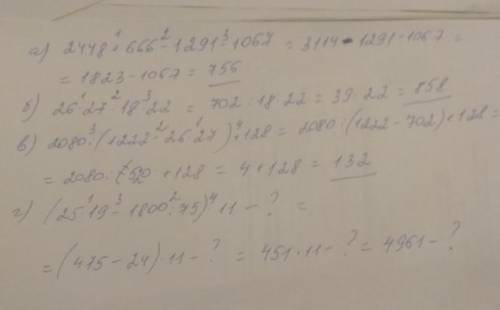 а) 2448 + 666 - 1291 - 1067 = 3114 - 1291 - 1067 =
= 1823 - 1067 = 756
б) 26 · 27 : 18 · 22 = 702 : 18 · 22 = 39 · 22 = 858
в) 2080 : (1222 - 26 · 27) + 128 = 2080 : (1222 - 702) + 128 =
= 2080 : 520 + 128 = 4 + 128 = 132
г) (25 · 19 - 1800 : 75) · 11 - ? =
= (475 - 24) · 11 - ? = 451 · 11 - ? = 4961 - ?